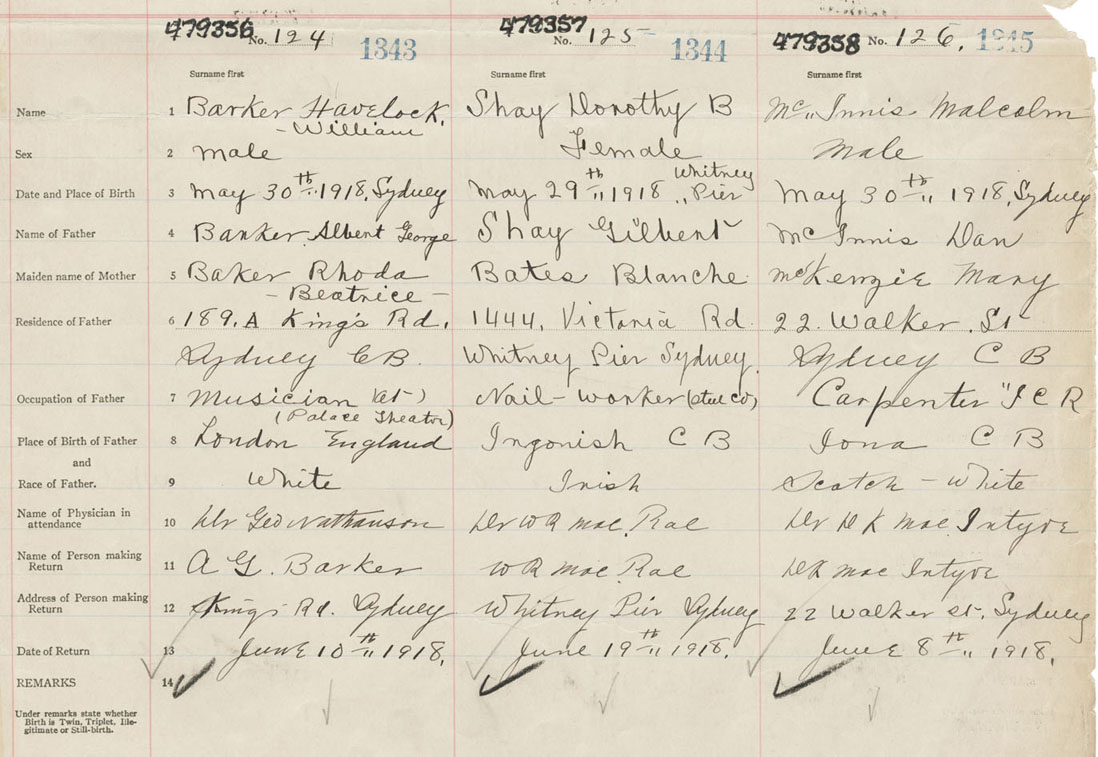 479356 No. 124 1343 479357 No. 125 1344 479358 No. 126. 1345
Surname first Surname first Surname first
Name 1 Barker Havelock. Shay Dorothy B Mc Innis Malcolm
- William
Sex 2 male Female Male
Whitney
Date and Place of Birth 3 May 30th 1918, Sydney May 29th 1918, Pier May 30th 1918, Sydney
Name of Father 4 Barker, Albert George Shay Gilbert Mc Innis Dan
Maiden name of Mother 5 Baker Rhoda Bates Blanche McKenzie Mary
- Beatrice -
Residence of Father 6 189. A King's Rd. 1444, Victoria Rd. 22. Walker. St
Sydney C B. Whitney Pier Sydney. Sydney C B
Occupation of Father 7 Musician (at) Nail-worker (steel co) Carpenter
(Palace Theator)
Place of Birth of Father 8 London England Ingonish C B Iona C B
and
Race of Father. 9 White Irish Scotch - White
Name of Physician in
attendance 10 Dr Geo Nathanson Dr W R Mac. Rae Dr D K Mac Intyre
Name of Person making
Return 11 A G. Barker W R Mac. Rae DK Mac Intyre
Address of Person making
Return 12 King's Rd. Sydney Whitney Pier Sydney 22 Walker st. Sydney
Date of Return 13 June 10th 1918. June 19th 1918. June 8th 1918.
REMARKS 14
Under remarks state whether
Birth is Twin, Triplet, Ille-
gitimate or Still-birth.